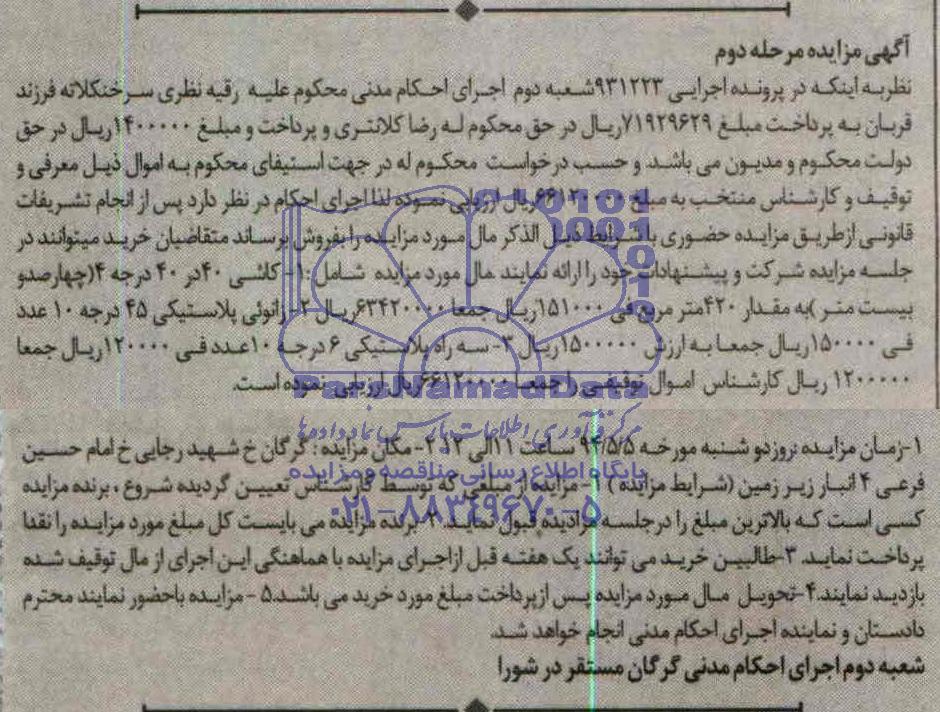 آگهی مزایده مرحله دوم
نظر به اینکه در پرونده اجرایی ۹۳۱۲۲۳شعبه دوم اجرای احکام مدنی محکوم علیه رقیه نظری سرخنکلاته فرزند
قربان به پرداخت مبلغ ۷۱۹۲۹۶۲۹ریال در حق محکوم له رضا کلانتری و پرداخت و مبلغ ۱۴۰۰۰۰۰ریال در حق
دولت محکوم و مدیون می باشد. و حسب درخواست محکوم له در جهت استیفای محکوم به اموال ذیل معرفی و
توقیف و کارشناس منتخب به مبلغ ۶۶۱۲۰۰۰۰ریال ارزیابی نموده لذا اجرای احکام در نظر دارد پس از انجام تشریفات
قانونی ازطریق مزایده حضوری با شرایط ذیل الذکر مال مورد مزایده را بفروش برساند متقاضیان خرید میتوانند در
جلسه مزایده شرکت و پیشنهادات خود را ارائه نمایند .مال مورد مزایده شامل :۱- کاشی ۴۰در ۴۰ درجه ۴(چهارصدو
بیست متر )به مقدار ۴۲۰متر مربع فی ۱۵۱۰۰۰ریال جمعا ۶۳۴۲۰۰۰۰ریال ۲- زانوئی پلاستیکی ۴۵ درجه ۱۰ عدد
فی ۱۵۰۰۰۰ریال جمعا به ارزش ۱۵۰۰۰۰۰ریال ۳-سه راه پلاستیکی ۶ درجه ۱۰عدد فی ۱۲۰۰۰۰ریال جمعا
۱۲۰۰۰۰۰ ریال کارشناس اموال توقیفی را جمعا ۶۶۱۲۰۰۰۰ریال ارزیابی نموده است.
ParsNamadData
مرکز فرآوری اطلاعات پارس نماد داده ها
۱-زمان مزایده :روزدو شنبه مورخه ۹۴/۵/۵ ساعت ۱۱الی ۱۲ ۲- مکان مزایده : گرگان خ شهید رجایی خ امام حسین
پایگاه اطلاع رسانی مناقصه و مزایده
فرعی ۴ انبار زیر زمین (شرایط مزایده ) ۱- مزایده از مبلغی که توسط کارشناس تعیین گردیده شروع ، برنده مزایده
۰۲۱-۸۸۳۴۹۶۷۰-۵
کسی است که بالاترین مبلغ را درجلسه مزادیده قبول نماید. ۲-برنده مزایده می بایست کل مبلغ مورد مزایده را نقدا
پرداخت نماید. ۳-طالبین خرید می توانند یک هفته قبل ازاجرای مزایده با هماهنگی این اجرای از مال توقیف شده
بازدید نمایند.۴-تحویل مال مورد مزایده پس ازپرداخت مبلغ مورد خرید می باشد.۵- مزایده باحضور نمایند محترم
دادستان و نماینده اجرای احکام مدنی انجام خواهد شد.
شعبه دوم اجرای احکام مدنی گرگان مستقر در شورا